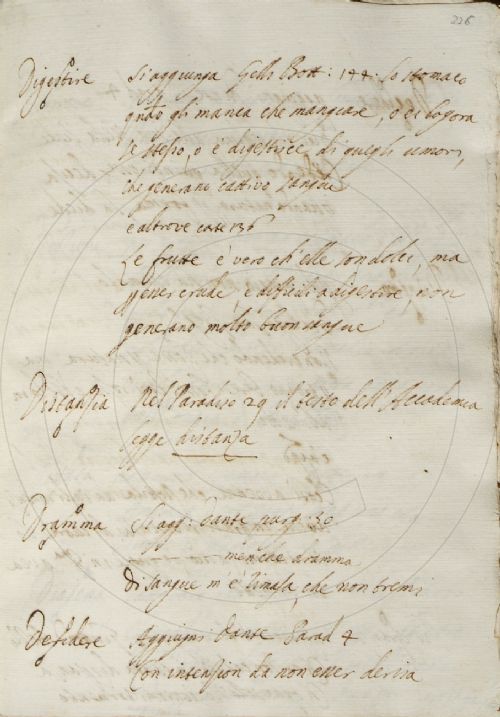 226
Digestire Si aggiunga Gell: Bott: 144: lo stomaco
qñdo gli manca che mangiare, o ei logora
se stesso, o è digestrice di quegli umori,
che generano cattivo sangue
e altrove carte 136
Le frutte è vero ch'elle son dolci, ma
per crude, e difficili a digestire, non
generano molto buon sangue
Distanzia Nel Paradiso 29 il testo dell'Accademia
legge distanza
Dramma Si agg: Dante purg: 30
men che dramma
Di sangue m'è rimasa, che non tremi
Aggiugni Dante Parad 4
Con intension da non esser derisa